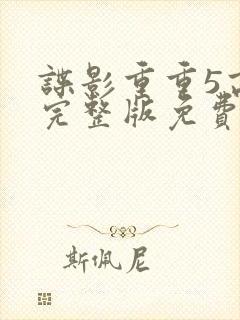 諜影重重5高
完整版免費
斯佩尼